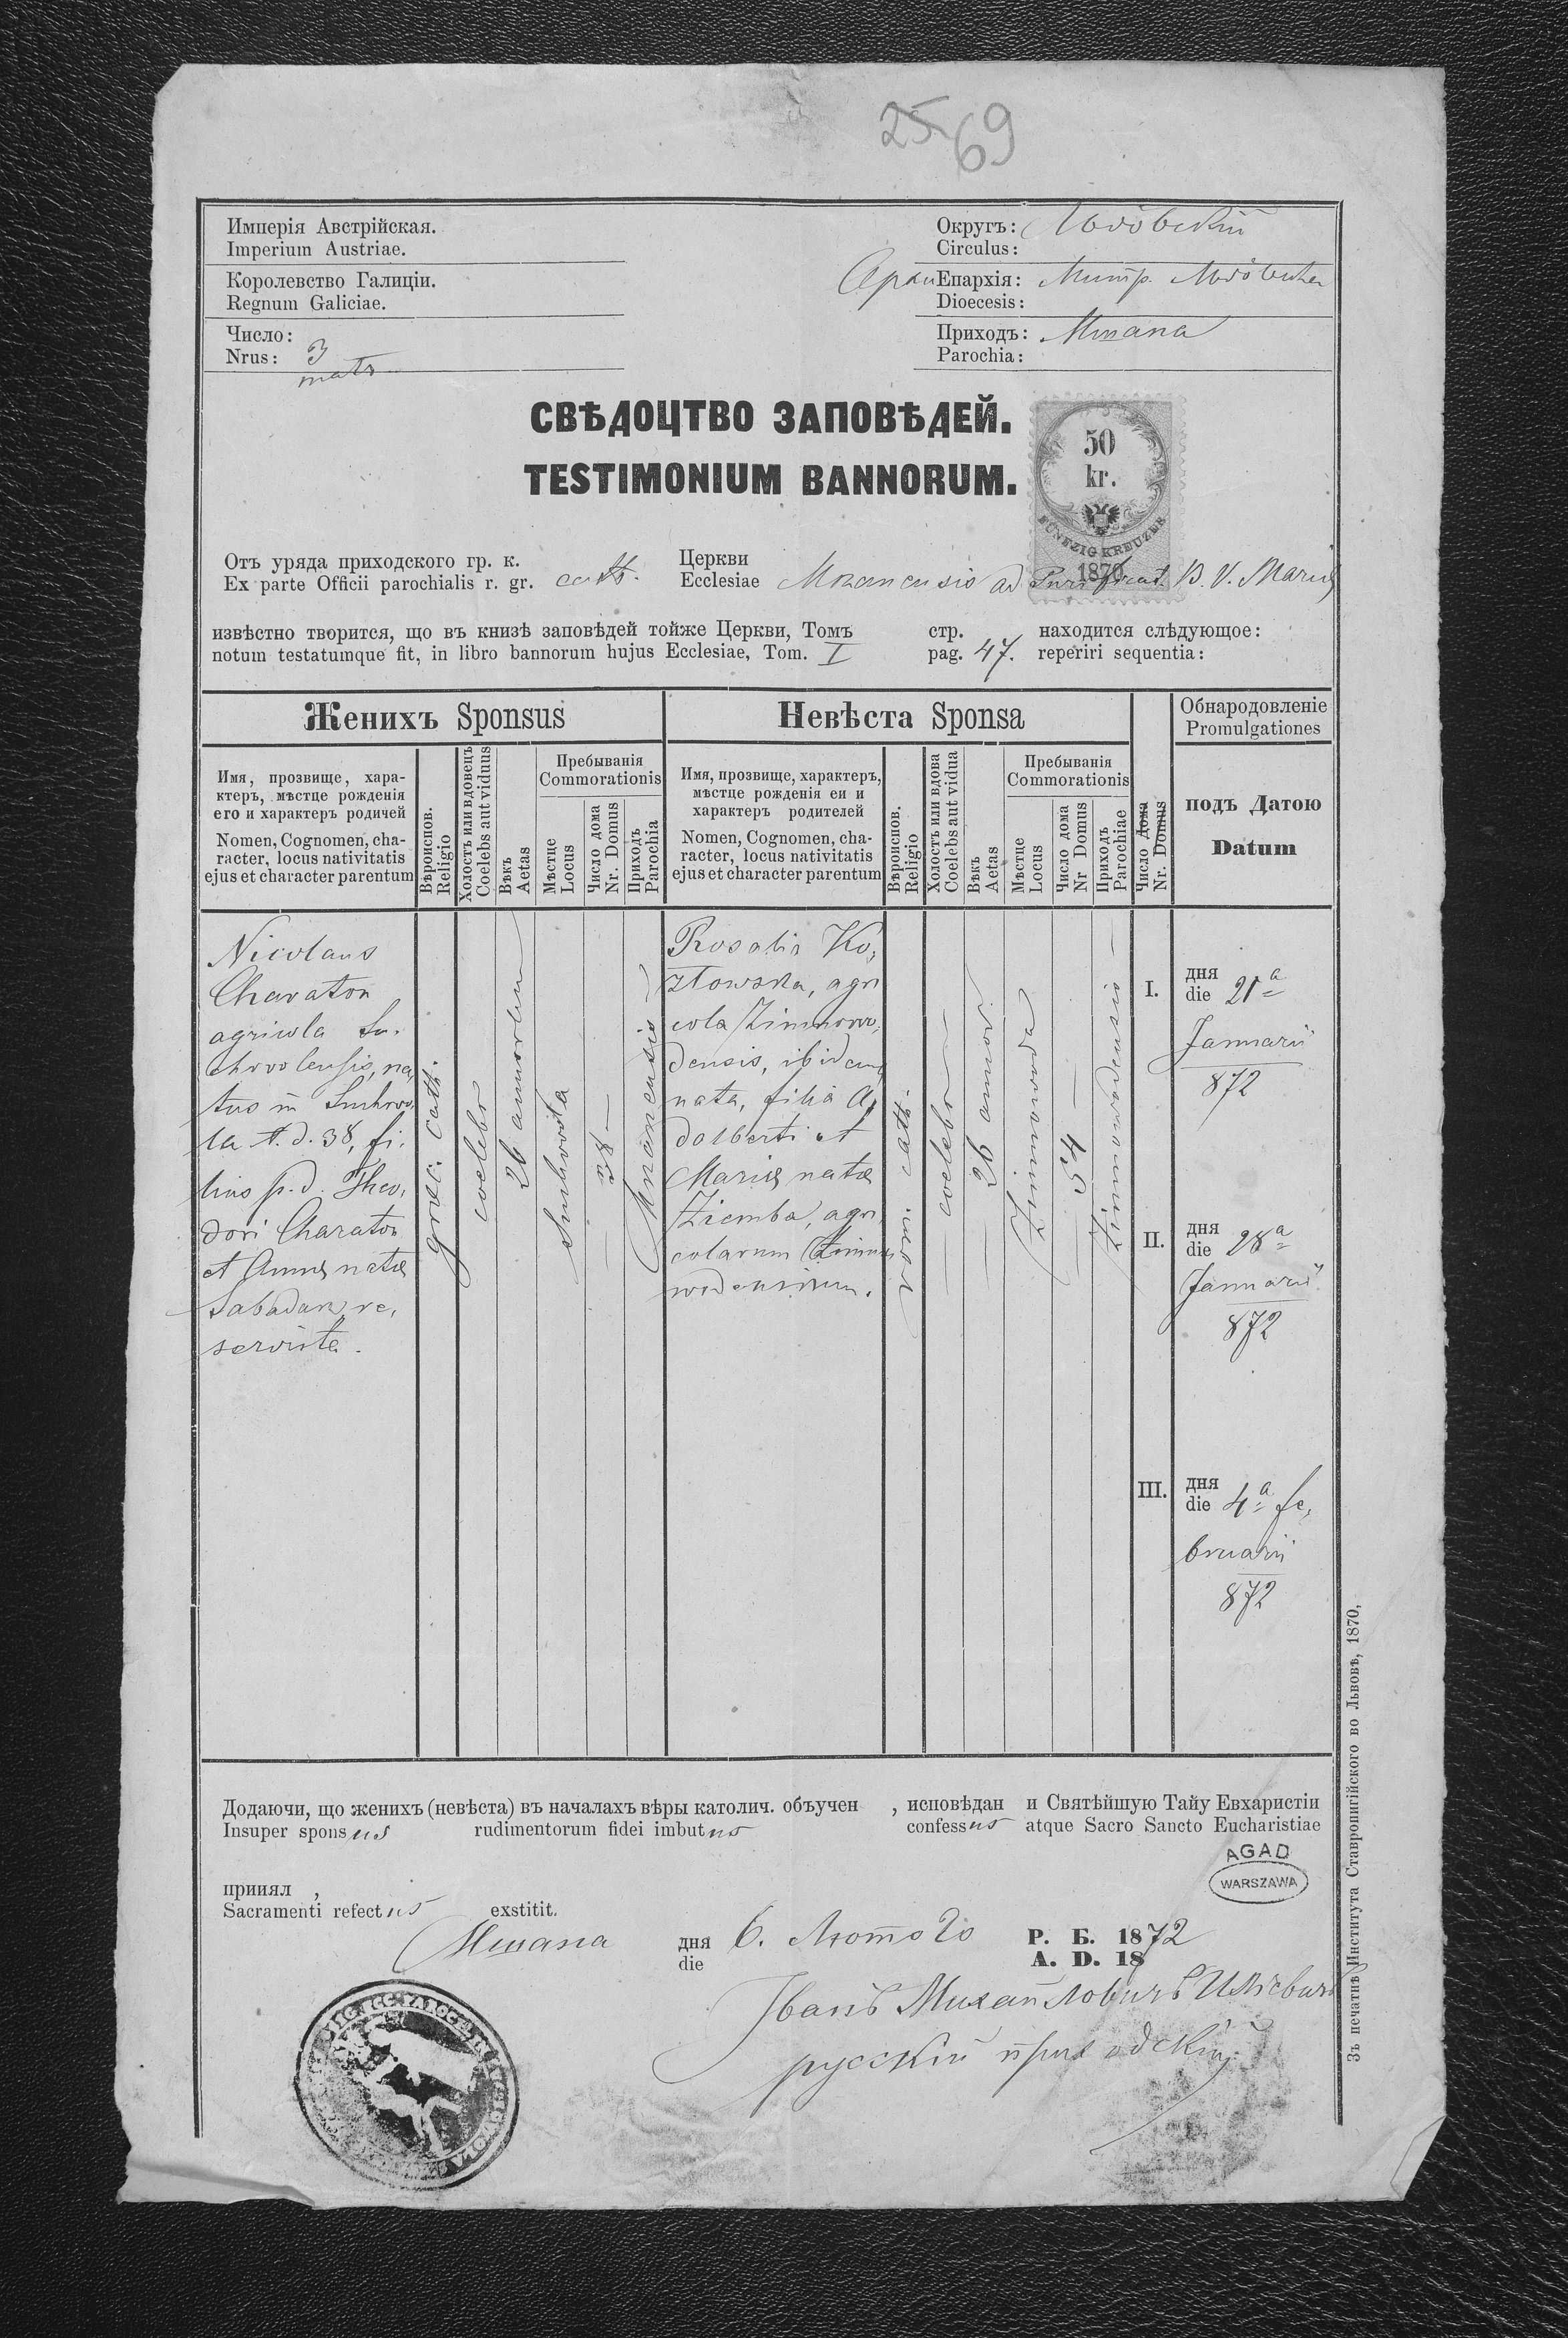 25/69
Имперія Австрійская.
Imperium Austriae.
Королевство Галиціи.
Regnum Galiciae.
Число:
Nrus: 3
matr.
Округъ: Львôвскій
Circulus:
Архи Епархія: Митр. Львôвска
Dioecesis:
Приходъ: Мшана
Parochia:
СВѢДОЦТВО ЗАПОВѢДЕЙ.
TESTIMONIUM BANNORUM.
50
kr.
FÜNFZIG KREUZER
1870
Отъ уряда приходского гр. к. Церкви
Ex parte Officii parochialis r. gr. cath. Ecclesiae Mszanensis ad Purificat. B. V. Mariæ
извѣстно творится, що въ книзѣ заповѣдей тойже Церкви, Томъ стр. находится слѣдующое:
notum testatumque fit, in libro bannorum hujus Ecclesiae, Tom. I pag. 47. reperiri sequentia:
Женихъ Sponsus
Невѣста Sponsa
Обнародовленіе
Promulgationes
Имя, прозвище, хара-
ктеръ, мѣстце рожденія
его и характеръ родичей
Nomen, Cognomen, cha-
racter, locus nativitatis
ejus et character parentum
Вѣроиспов.
Religio
Холостъ или вдовецъ
Coelebs aut viduus
Вѣкъ
Aetas
Пребыванія
Commorationis
Мѣстце
Locus
Число дома
Nr. Domus
Приходъ
Parochia
Имя, прозвище, характеръ,
мѣстце рожденія еи и
характеръ родителей
Nomen, Cognomen, cha-
racter, locus nativitatis
ejus et character parentum
Вѣроиспов.
Religio
Холостъ или вдова
Coelebs aut vidua
Вѣкъ
Aetas
Пребыванія
Commorationis
Мѣстце
Locus
Число дома
Nr Domus
Приходъ
Parochiae
Число Дома
Nr. Domus
подъ Датою
Datum
Nicolaus
Charaton
agricola Su-
chowolensis, na,
tus in Suchowo,
la N. d. 38, fi-
lius p. d. Theo,
dori Charaton
et Annæ natæ
Sabadasz, re,
servista.
græc. cath.
coelebs
26 annorum
Suchowola
38
Mszanensis
Rosalia Ko,
złowska, agri
cola Zimnowo,
densis, ibidem
nata, filia A,
dalberti et
Mariæ natæ
Ziemba, agri,
colarum Zimno
wodensium.
cath.
coelebs
26 annor.
Zimnowoda
54
Zimnowodensis
I. дня
die 21a
Januarii
872
II. дня
die 28a
Januarii
872
III. дня
die 4a fe,
bruarii
872
Додаючи, що женихъ (невѣста) въ началахъ вѣры католич. объучен , исповѣдан и Святѣйшую Тайу Евхаристіи
Insuper sponsus rudimentorum fidei imbutus confessus atque Sacro Sancto Eucharistiae
прииял ,
Sacramenti refectus exstitit.
AGAD
WARSZAWA
Мшана дня 6. Лютого Р. Б. 1872
die A. D. 18
Іванъ Михайловичъ Илѣевичъ
русскій приходскій
Зъ печатнѣ Института Ставропигійского во Львовѣ, 1870,